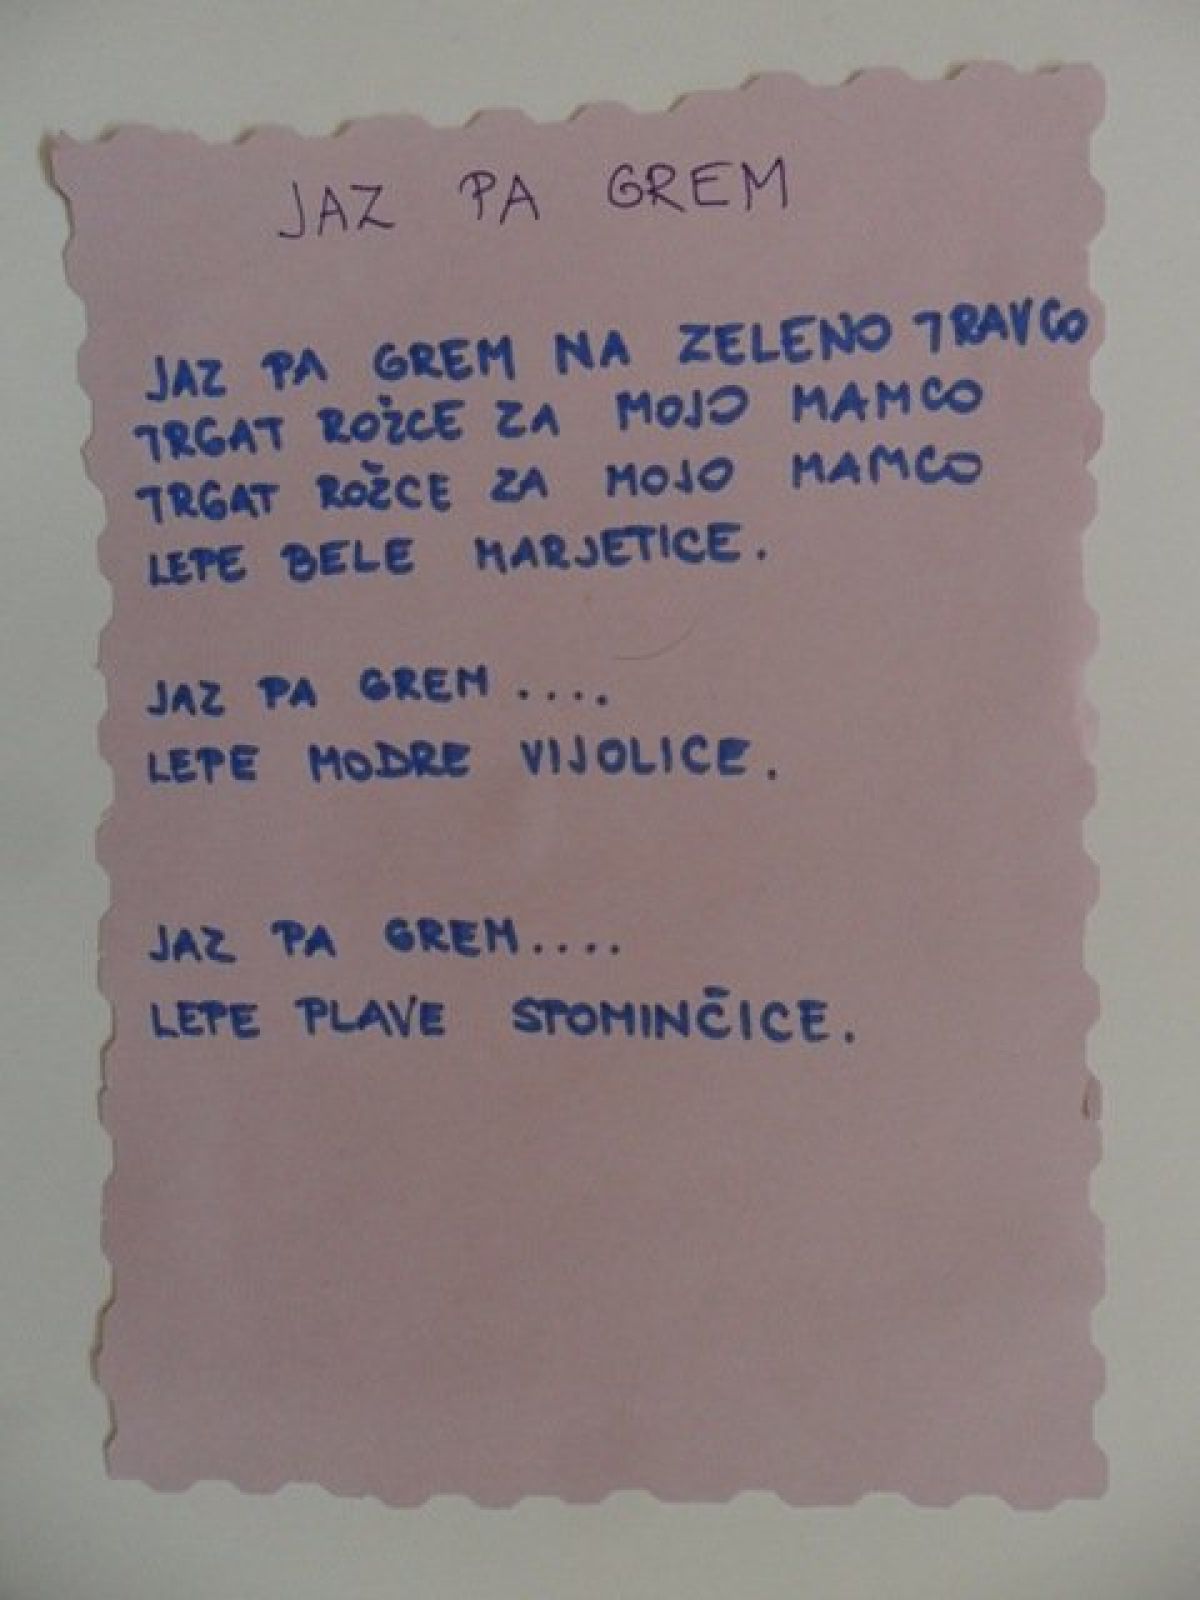 JAZ PA GREM
JAZ PA GREM NA ZELENO TRAVCO
TRGAT ROŽCE ZA MOJO MAMCO
TRGAT ROŽCE ZA MOJO MAMCO
LEPE BELE MARJETICE.
JAZ PA GREM ....
LEPE MODRE VIJOLICE.
JAZ PA GREM....
LEPE PLAVE SPOMINČICE.